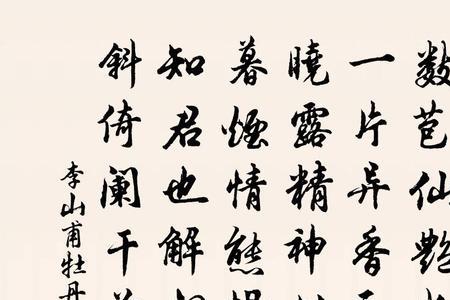 数苞仙艷
一片异香
曉露精神
暮煙情態
知君也解
斜倚阑干
李山甫牡丹